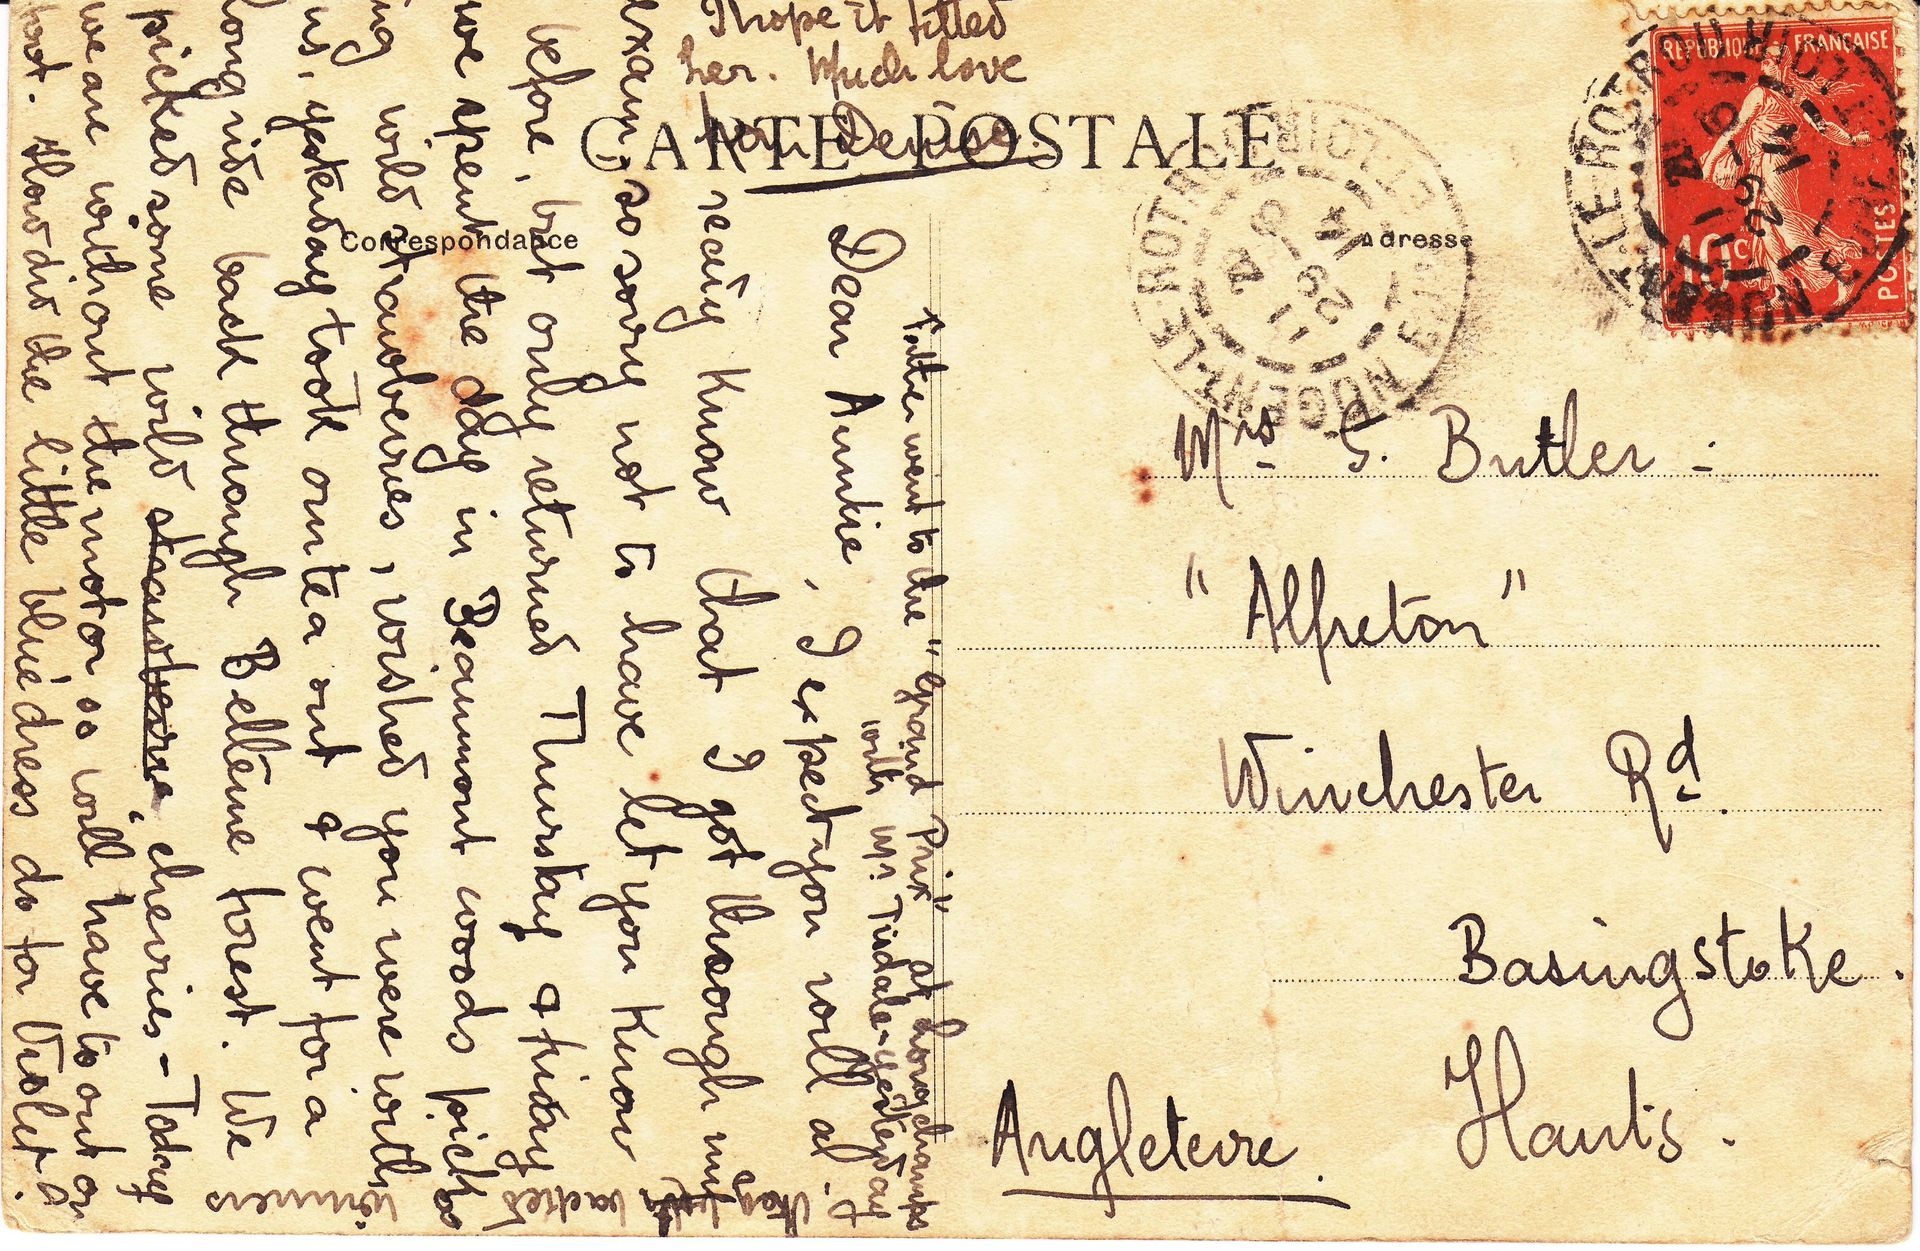 CARTE POSTALE
Correspondance
Adresse
REPUBLIQUE FRANÇAISE
10c
POSTES
NOGENT-LE-ROTROU
EURE-ET-LOIR
Mrs G. Butler -
"Alfreton"
Winchester Rd.
Basingstoke.
Hants.
Angleterre.
Dear Auntie, I expect you will al
ready know that I got through my
exam, so sorry not to have let you know
before, but only returned Thursday & friday
we spent the day in Beaumont woods pick
ing wild strawberries, wished you were with
us, yesterday took our tea out & went for a
long ride back through Bellême forest. We
picked some wild strawberrie, cherries - Today
we are without the motor so will have to out on
foot. How did the little blue dress do for Violet?
I hope it fitted
her. Much love
from Denise.
Father went to the "Grand Prix" at Longchamps
with Mr. Tisdale - yesterday
They backed
winners